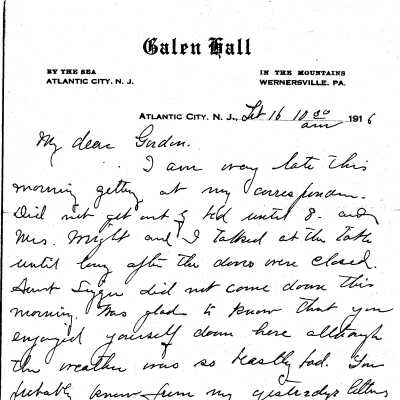 Galen Hall
BY THE SEA
ATLANTIC CITY, N. J.
IN THE MOUNTAINS
WERNERSVILLE, PA.
ATLANTIC CITY, N. J., Feb 16 10 30 am 1916
My dear Gordon.
I am very late this
morning getting at my correspondence.
Did not get out of bed until 8. and
Mrs. Wright and I talked at the table
until long after the doors were closed.
Aunt Lizzie did not come down this
morning. Was glad to know that you
enjoyed yourself down here although
the weather was so beastly bad. You
probably knew from my yesterdays letters